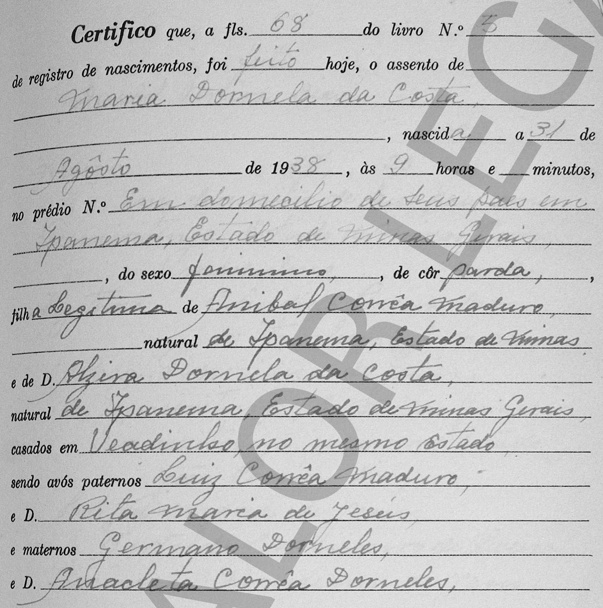 Certifico que, a fls. 68 do livro N.º 5
de registro de nascimentos, foi feito hoje, o assento de
Maria Dornela da Costa,
, nascida a 31 de
Agôsto de 1938, às 9 horas e minutos,
no prédio N.º Em domecilio de seus pais em
Ipanema, Estado de Minas Gerais,
, do sexo feminino, , de côr parda, ,
filha Legitima de Anibal Corrêa Maduro,
natural de Ipanema, Estado de Minas
e de D. Alzira Dornela da Costa,
natural de Ipanema, Estado de Minas Gerais,
casados em Veadinho, no mesmo Estado
sendo avós paternos Luiz Corrêa Maduro,
e D. Rita Maria de Jesús,
e maternos Germano Dorneles,
e D. Anacleta Corrêa Dorneles,
VALOR LEGA